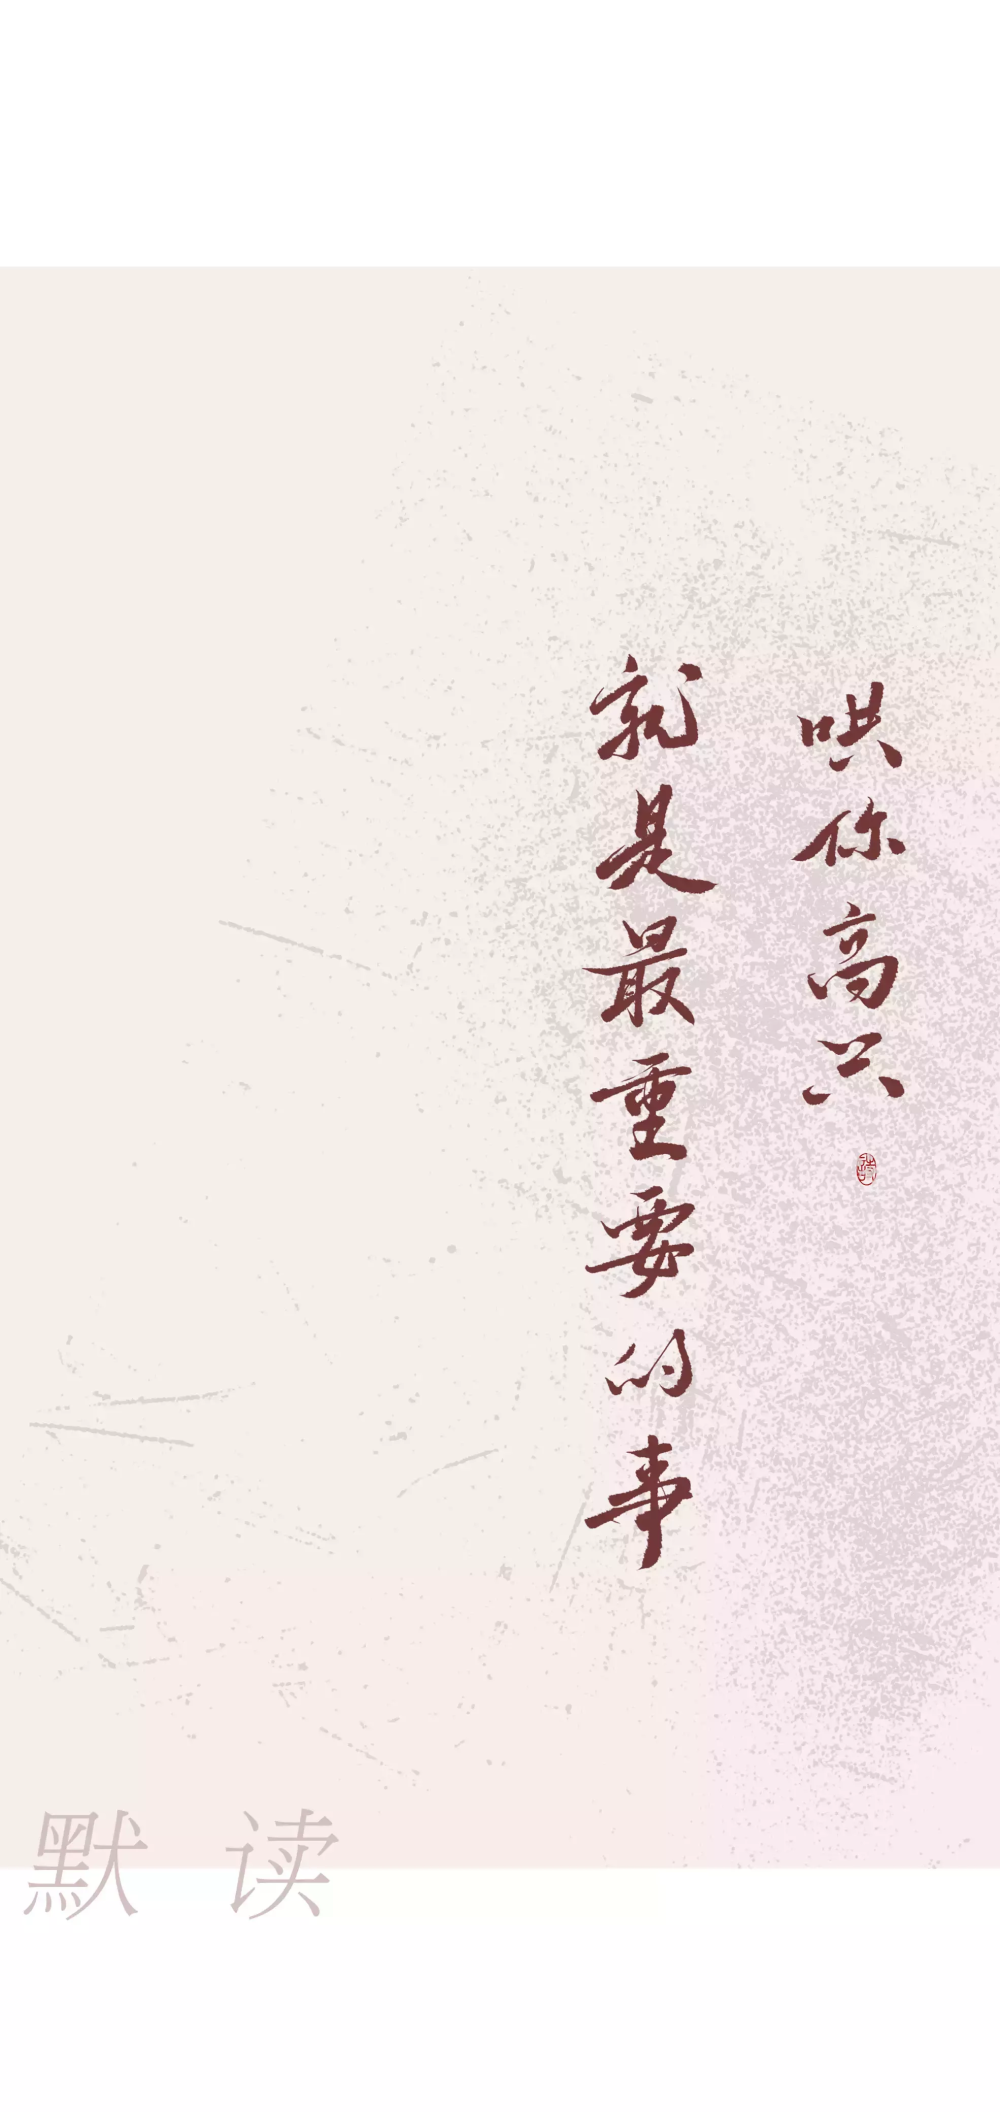 哄你高兴
就是最重要的事
默读